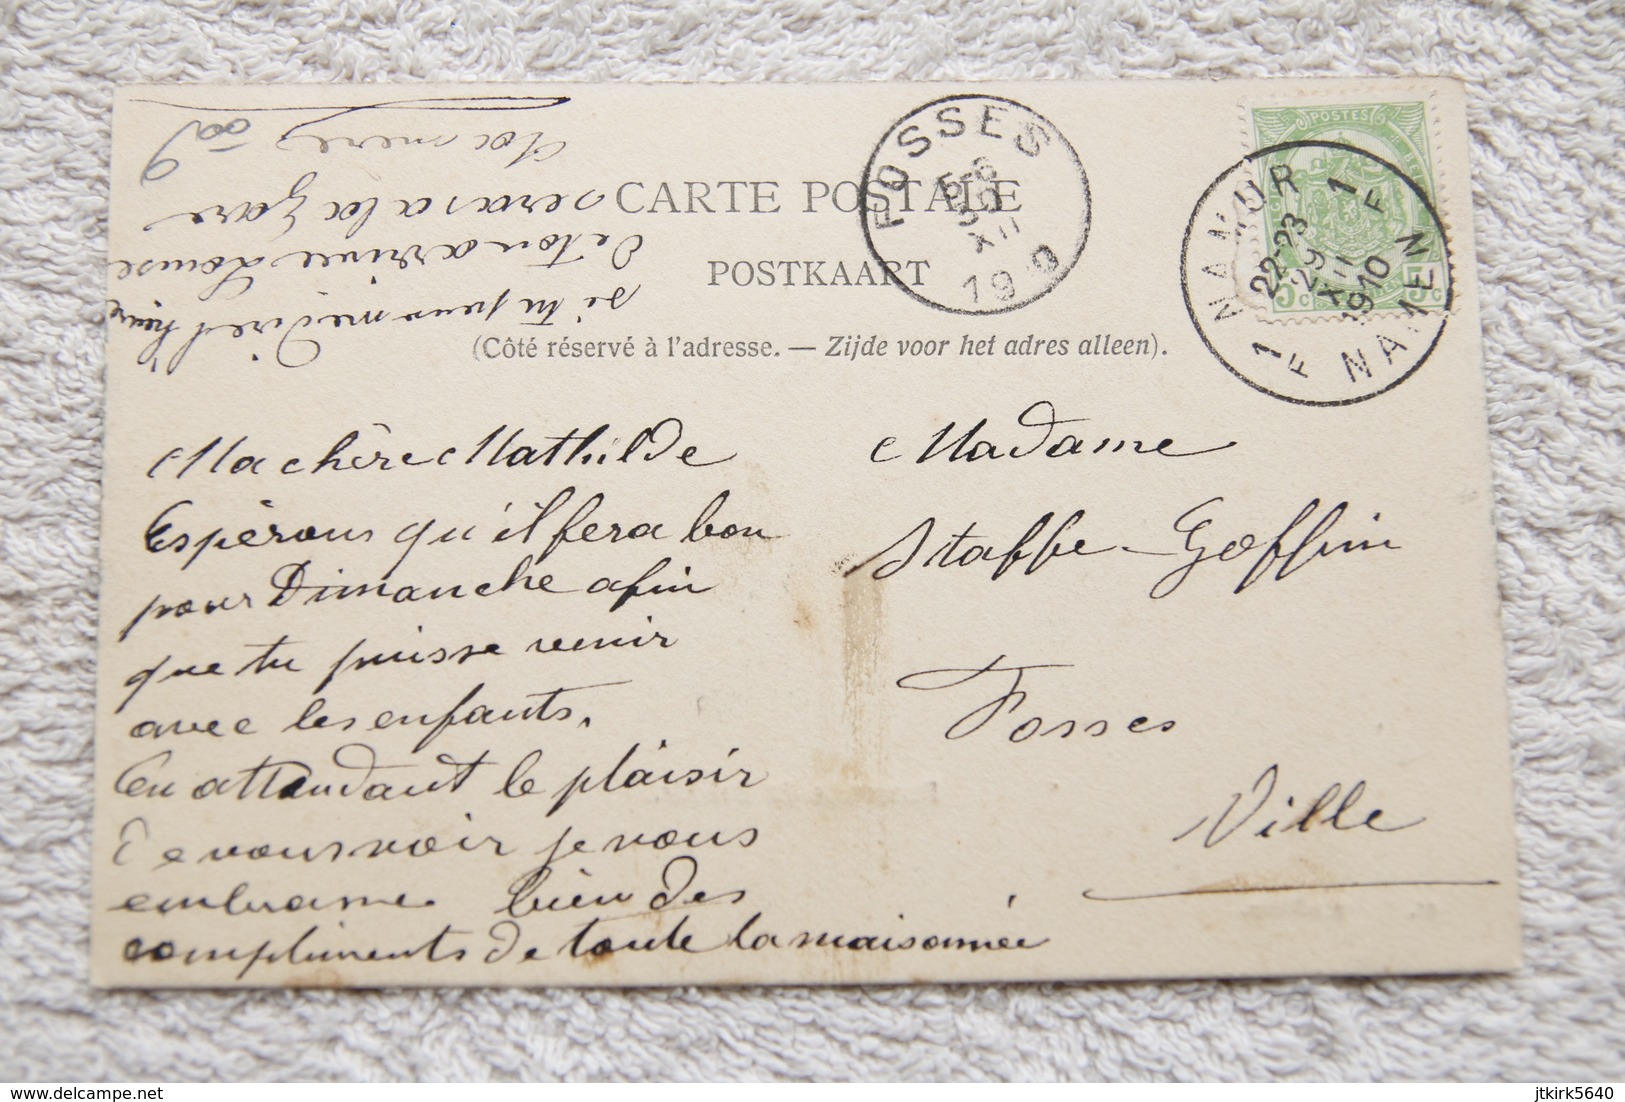 CARTE POSTALE
POSTKAART
(Côté réservé à l'adresse. — Zijde voor het adres alleen).
FOSSES
XII
NAMUR
1 F 22-23 1 F
29
XII
1910
NAMEN
POSTES
5c 5c
Ma chère Mathilde
Espérons qu'il fera bon
pour Dimanche afin
que tu puisse venir
avec les enfants.
En attendant le plaisir
de vous voir je vous
embrasse bien des
compliments de toute la maisonnée
si tu peux me dire l'heure
de ton arrivée Louise
seras a la gare
ta mere
Madame
Staffe-Goffin
Fosses
Ville
delcampe.net
jtkirk5640